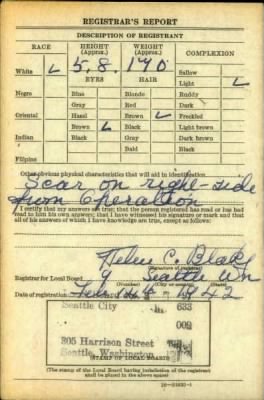 REGISTRAR'S REPORT
DESCRIPTION OF REGISTRANT
RACE HEIGHT (Approx.) WEIGHT (Approx.) COMPLEXION
White ✓ 5.8. 140 Sallow
EYES HAIR Light ✓
Negro Blue Blonde Ruddy
Gray Red Dark
Oriental Hazel Brown ✓ Freckled
Brown ✓ Black Light brown
Indian Black Gray Dark brown
Bald Black
Filipino
Other obvious physical characteristics that will aid in identification
Scar on right-side
from operation
I certify that my answers are true; that the person registered has read or has had
read to him his own answers; that I have witnessed his signature or mark and that
all of his answers of which I have knowledge are true, except as follows:
Helen C.
(Signature of registrar)
Registrar for Local Board Seattle Wn
(Number) (City or county) (State)
Date of registration Feb 1942
Seattle City 633
009
305 Harrison Street
Seattle, Washington
(STAMP OF LOCAL BOARD)
(The stamp of the Local Board having jurisdiction of the registrant
shall be placed in the above space)